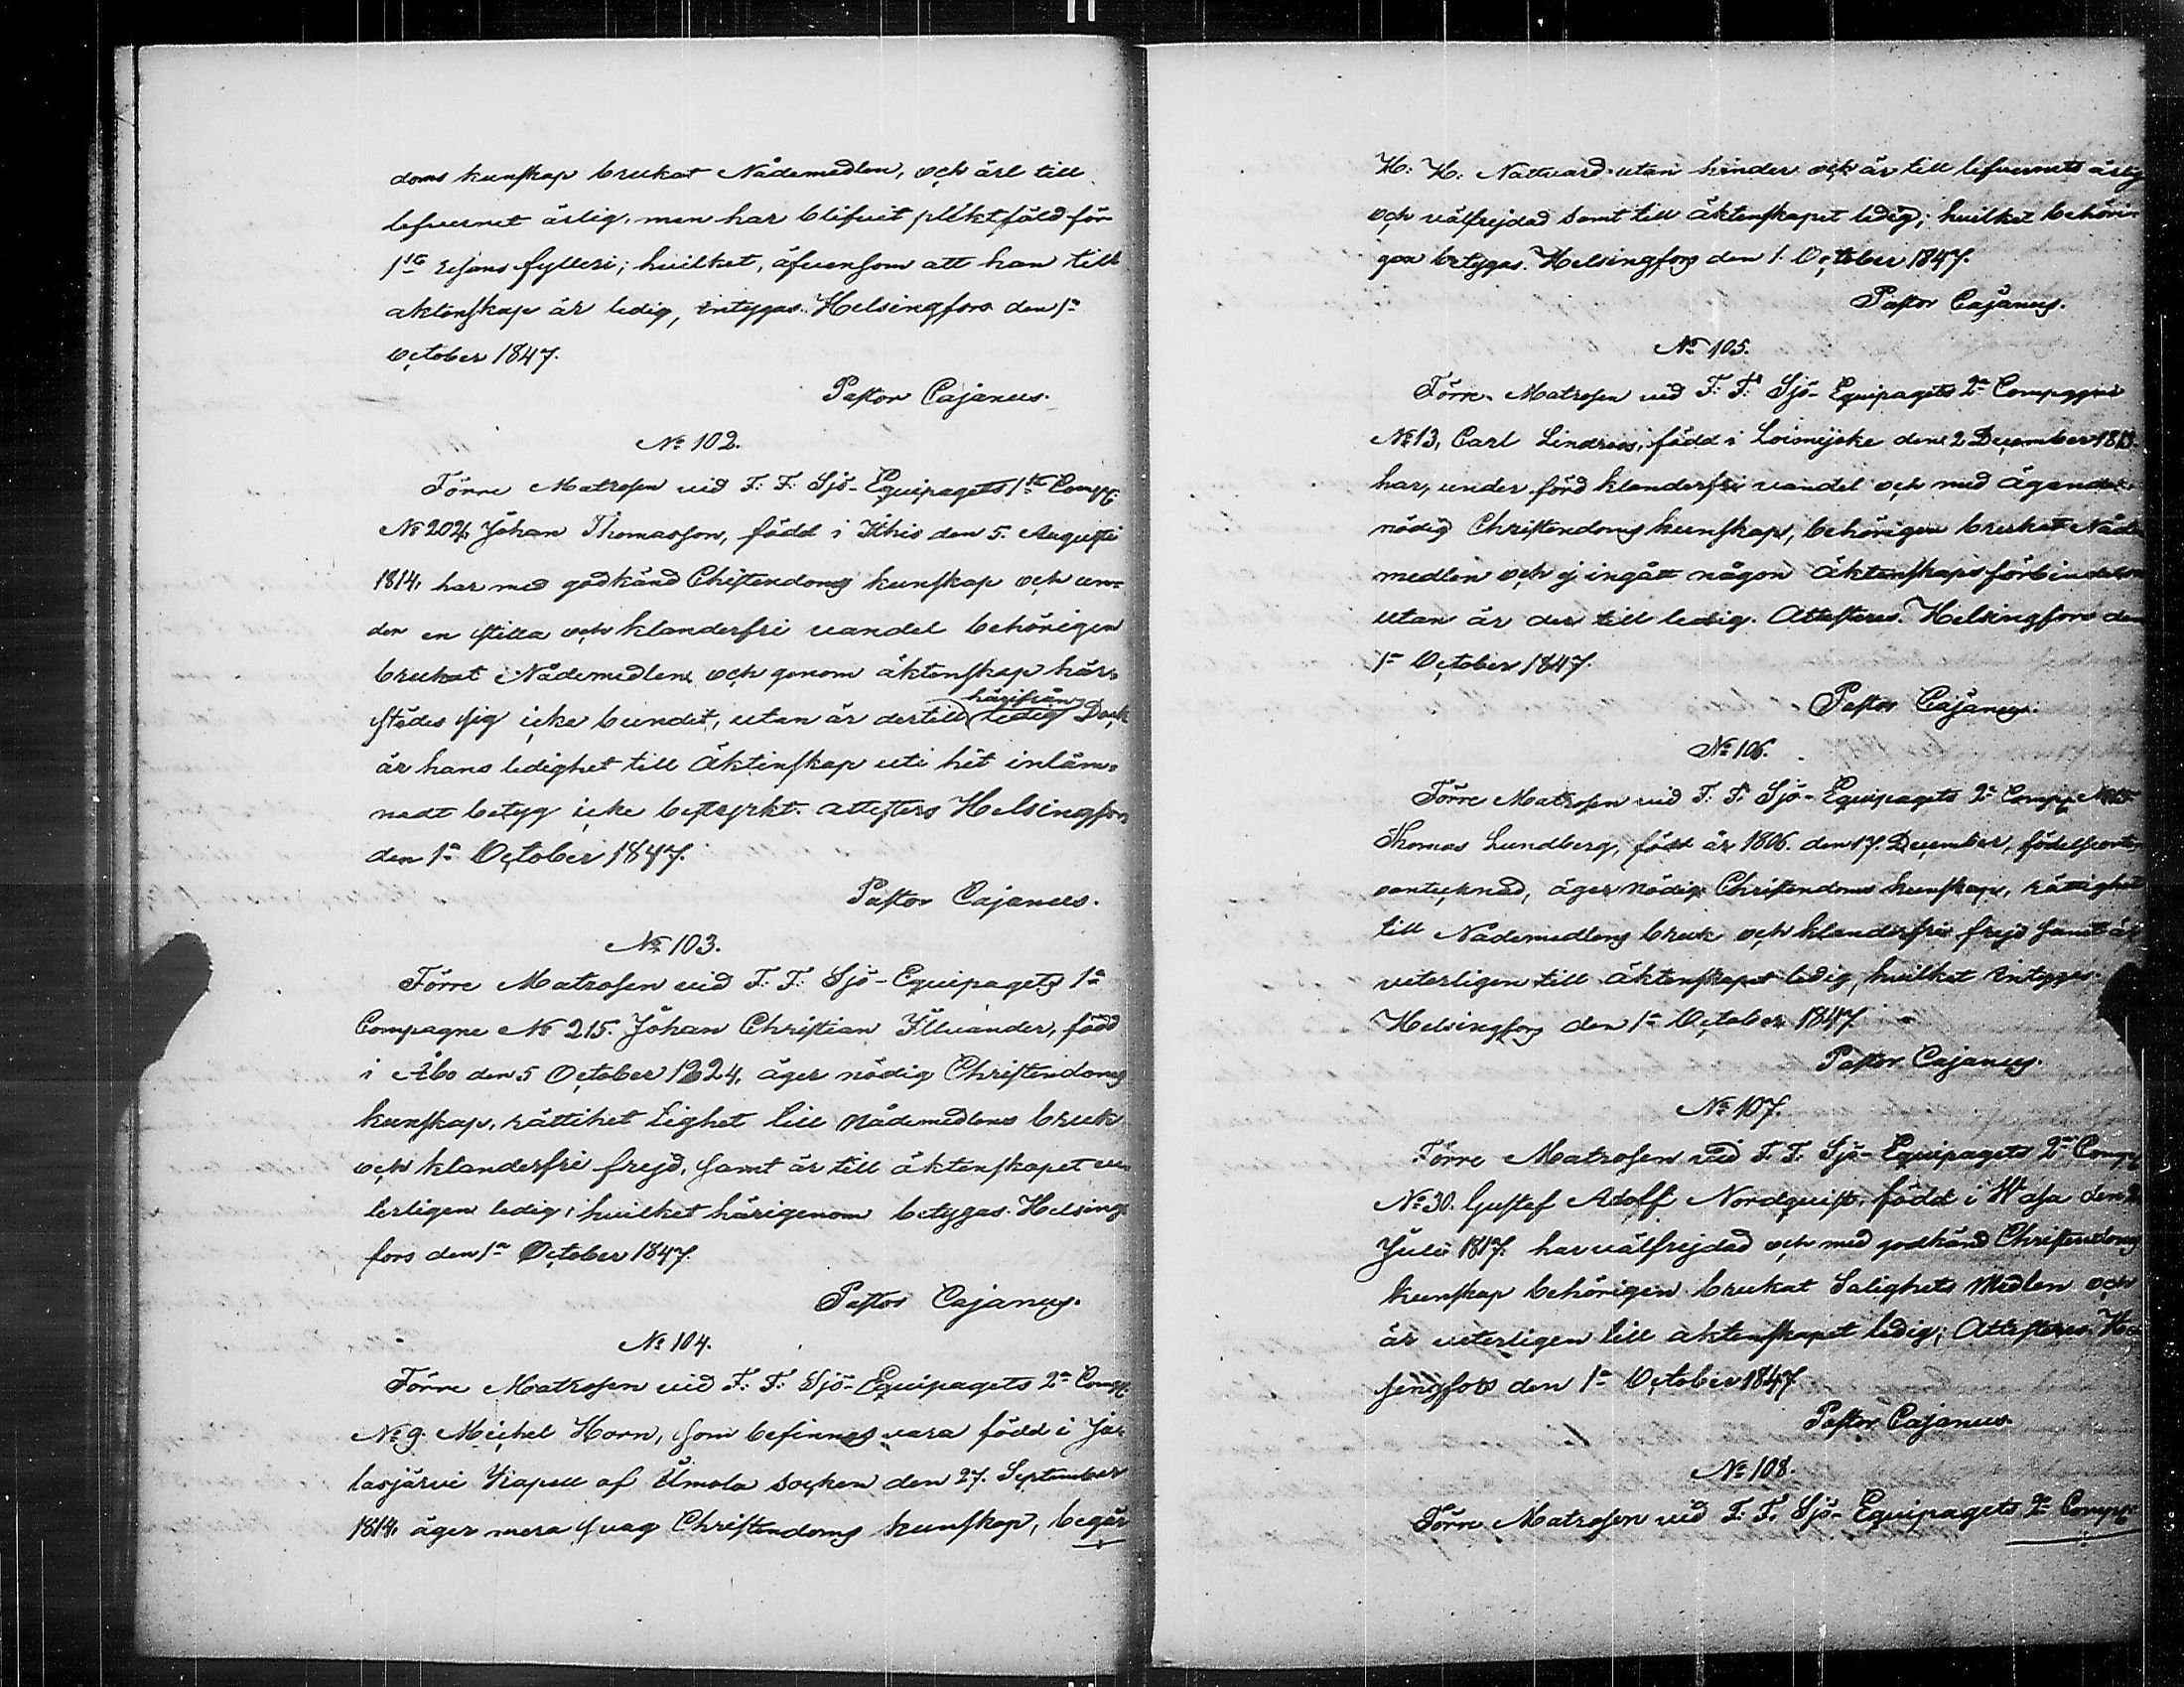 doms kunskap brukat Nådemedlen, och ärl till
lefvernet ärlig, men har blifvit pliktfäld för
1sta resans fylleri; hvilket, äfvensom att han till
aktenskap är ledig, intygas. Helsingfors den 1a
October 1847.
Pastor Cajanus.
No 102.
Förre Matrosen vid F: F: Sjö-Equipagets 1sta Comp:
No 204, Johan Thomasson, född i Ithis den 5. Augusti
1814, har med godkänd Chistendoms kunskap och un-
der en stilla och klanderfri vandel behörigen
brukat Nådemedlen och genom äktenskap här-
städes sig icke bundit, utan är dertill härifrån ledig Dock
är hans ledighet till Äktenskap uti hit inläm-
nadt betyg icke bestyrkt. attesters Helsingfors
den 1a October 1847.
Pastor Cajanus.
No 103.
Förre Matrosen vid F: F: Sjö-Equipagets 1a
Compagne No 215. Johan Christian Illvander, född
i Åbo den 5 October 1824, äger nödig Christendoms
kunskap, rättihet lighet till Nådemedlens bruk
och klanderfri frejd, samt är till äktenskapet vet
terligen ledig; hvilket härigenom betygas. Helsing-
fors den 1a October 1847.
Pastor Cajanus.
No 104.
Förre Matrosen vid F: F: Sjö-Equipagets 2a Comp:
No 9. Michel Horn, som befinnes vara född i Ja-
lasjärvi Kapell af Ilmola socken den 27. September
1814, äger mera svag Christendoms kunskap, begår
H: H: Nattvard utan hinder och är till lefvernets ärlig
och välfrejdad samt till äktenskapet ledig; hvilket behörin-
gen betygas. Helsingfors den 1. October 1847.
Pastor Cajanus.
No 105.
Förre Matrosen vid F: F: Sjö-Equipagets 2a Compagnie
No 13, Carl Lindroos, född i Loimijoke den 2 December 1813.
har, under förd klanderfri vandel och med ägande
nödig Christendoms kunskap, behörigen brukat Nåde
medlen och ej ingått någon äktenskaps förbindelse
utan är der till ledig. Attesteras. Helsingfors den
1a October 1847.
Pastor Cajanus.
No 106.
Förre Matrosen vid F: F: Sjö-Equipagets 2a Comp:
Thomas Lundberg, född år 1806. den 17. December, födelseorten
oantecknad, äger nödig Christendoms kunskap, rättighet
till Nådemedlens bruk och klanderfri frejd samt är
veterligen till äktenskapet ledig, hvilket intygas.
Helsingfors den 1a October 1847.
Pastor Cajanus.
No 107.
Förre Matrosen vid F: F: Sjö-Equipagets 2a Comp:
No 30. Gustaf Adolf Nordquist, född i Wasa den
Juli 1817. har välfrejdad och med godkänd Christendoms
kunskap behörigen brukat Salighets Medlen och
är veterligen till aktenskapet ledig; Attesteras. Hel-
singfors den 1a October 1847
Pastor Cajanus.
No 108.
Förre Matrosen vid F: F: Sjö-Equipagets 2a Comp: